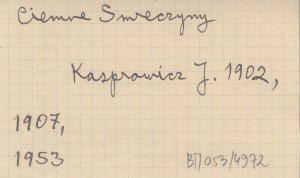 Ciemne Smreczyny
Kasprowicz J. 1902,
1907,
1953
ВП053/4972